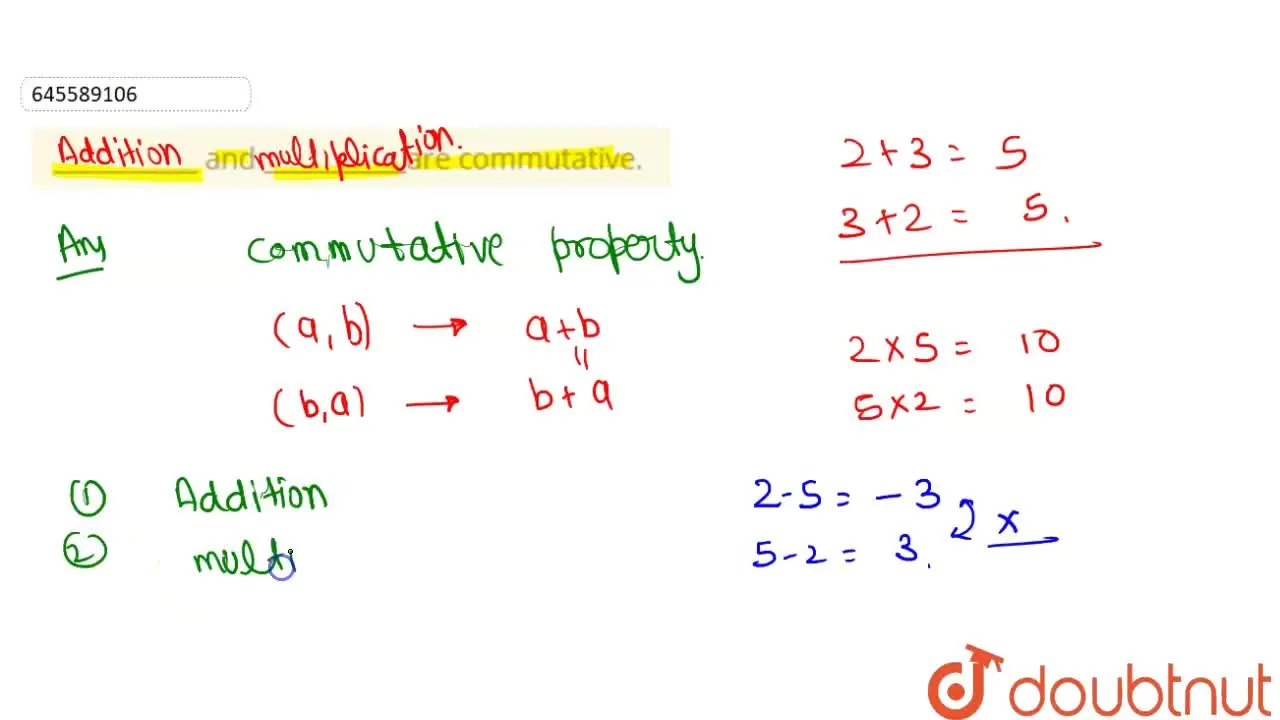 645589106
Addition and multiplication. are commutative.
Ans commutative property.
(a, b) → a+b
"
(b,a) → b+a
① Addition
② multi
2+3 = 5
3+2 = 5.
2×5 = 10
5×2 = 10
2-5 = -3
5-2 = 3. ×
doubtnut